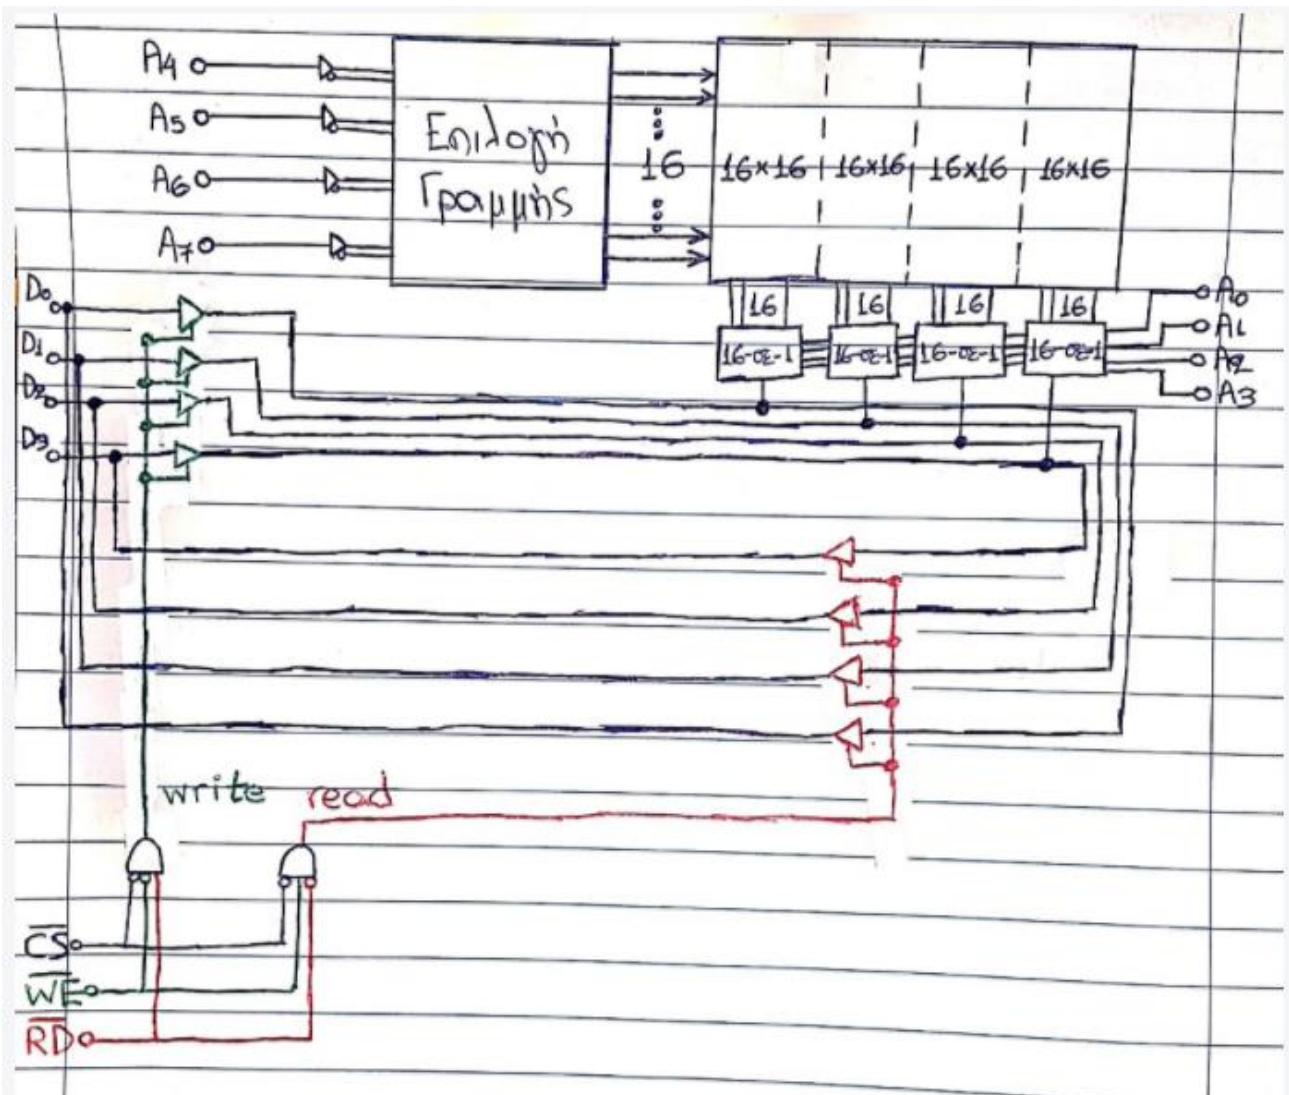 A4
A5
A6
A7
Επιλογή
Γραμμής
16
16x16 16x16 16x16 16x16
D0
D1
D2
D3
16 16 16 16
16-σε-1 16-σε-1 16-σε-1 16-σε-1
A0
A1
A2
A3
write read
CS
WE
RD